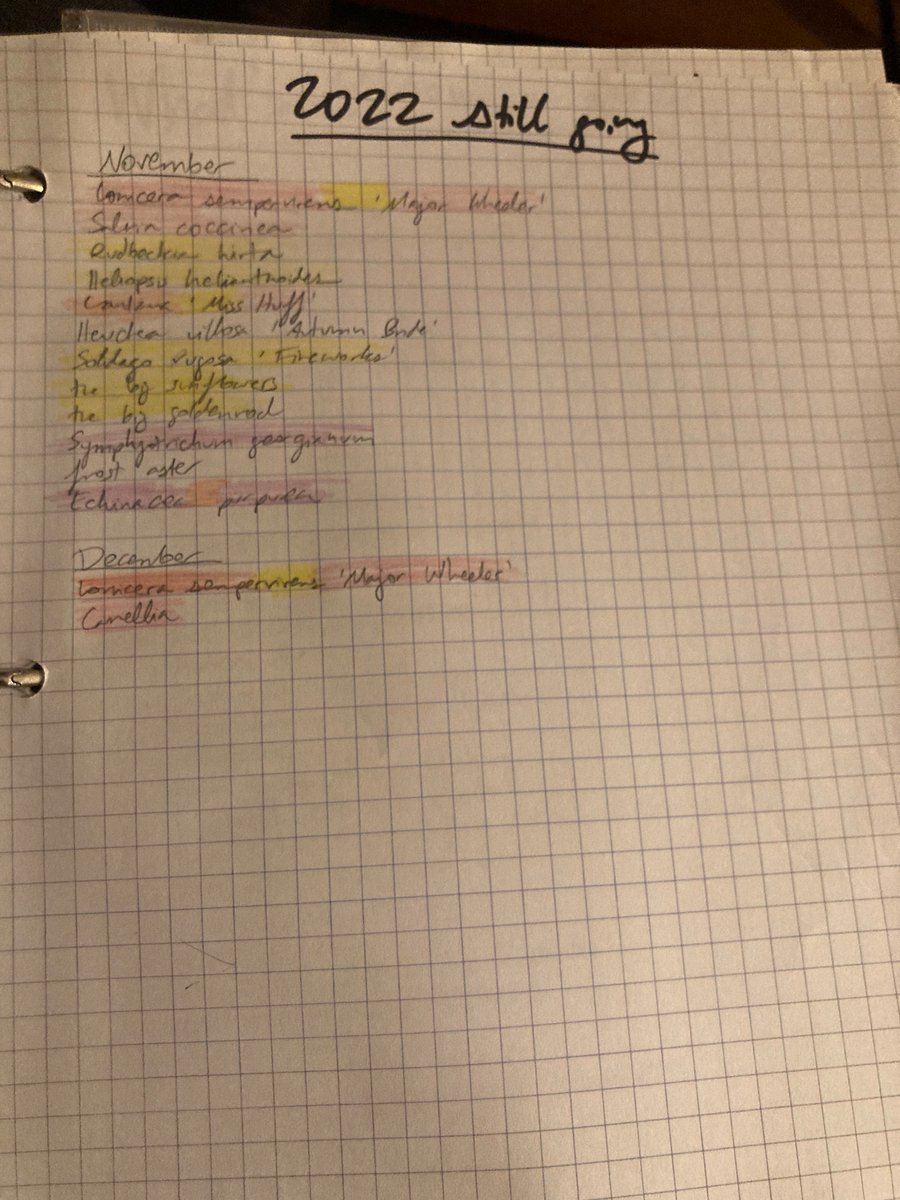 2022 still going
November
Lonicera sempervirens 'Major Wheeler'
Salvia coccinea
Rudbeckia hirta
Heliopsis helianthoides
Lantana 'Miss Huff'
Heuchera villosa 'Autumn Bride'
Solidago rugosa 'Fireworks'
the big sunflowers
the big goldenrod
Symphyotrichum georgianum
frost aster
Echinacea purpurea
December
Lonicera sempervirens 'Major Wheeler'
Camellia